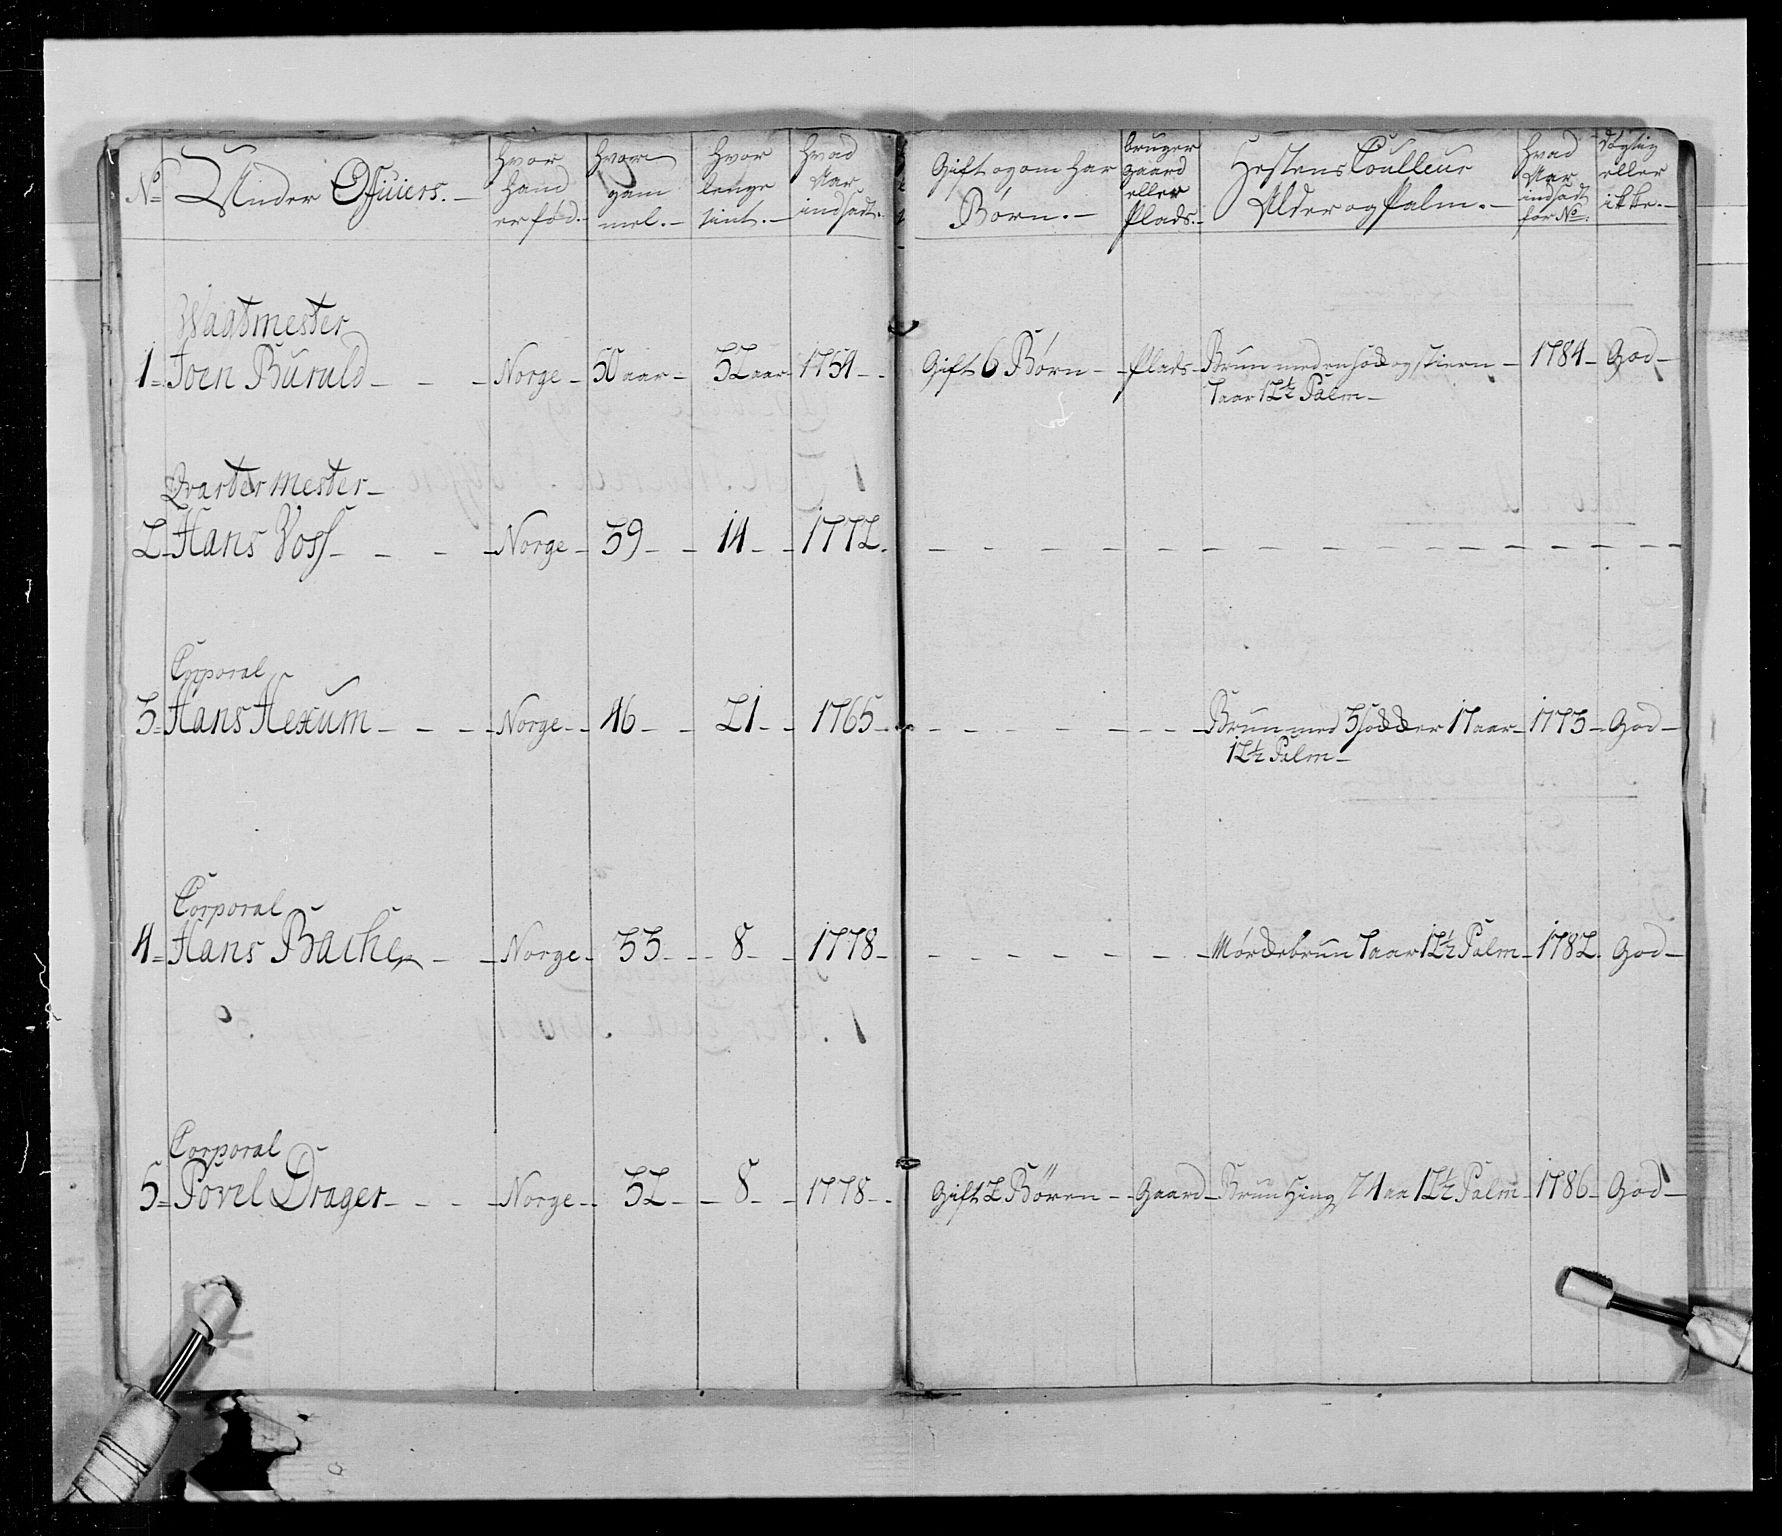 No
Under Officiers.
Hvor
hand
er fød.
Hvor
gam
mel.
Hvor
lenge
tient.
Hvad
Aar
indsadt.
Gift og om har
Børn.
bruger
gaard
eller
Plads.
Hestens Coulleur
Alder og Palm.
Hvad
Aar
indsadt
for No
dygtig
eller
ikke.
Wagtmester
1 Joen Buruld Norge 50 aar 32 aar 1754 Gift 6 Børn plads Brun med en sod og stiern 1784 God
7 aar 12½ Palm
Qvartermester
2 Hans Voss Norge 39 14 1772
Corporal
3 Hans Hexum Norge 46 21 1765 Brun med 3 sodder 17 aar 1773 God
12½ Palm
Corporal
4 Hans Bache Norge 33 8 1778 Mørdebrun 7 aar 12½ Palm 1782 God
Corporal
5 Povel Drager Norge 32 8 1778 Gift 2 Børen Gaard Brun Hing 4 aa 12½ Palm 1786 God